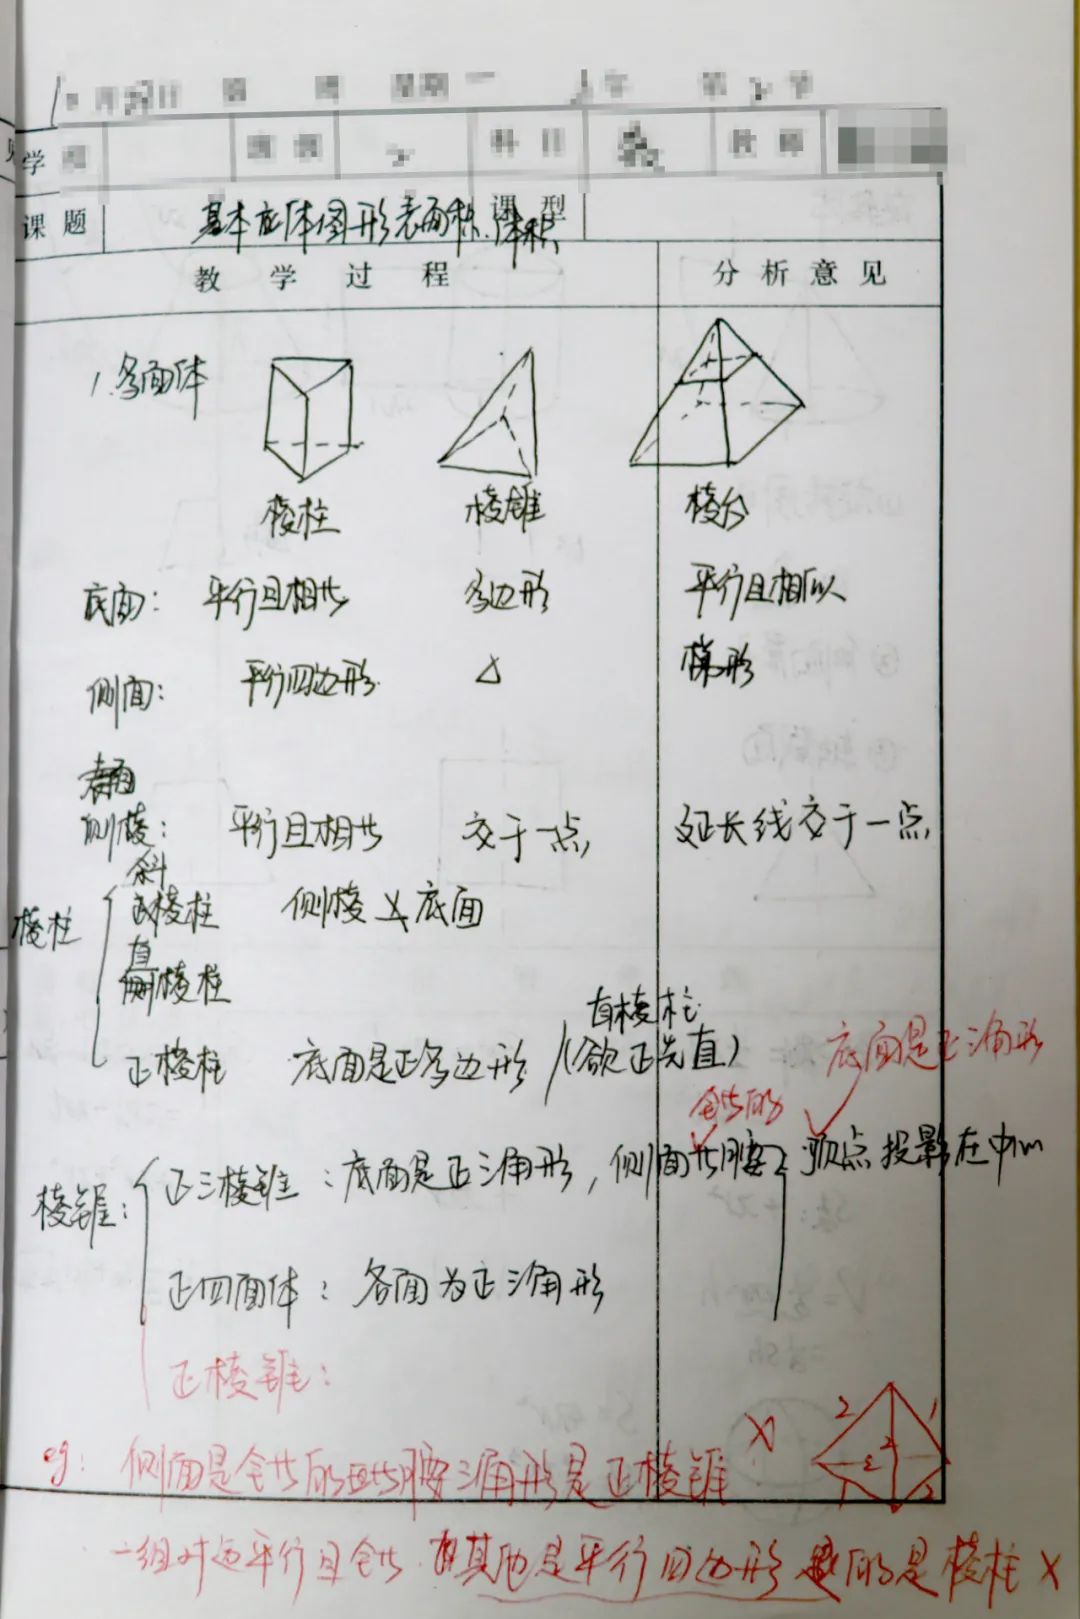 学
课题 基本立体图形表面积.体积 课型
教学过程 分析意见
1.多面体
棱柱 棱锥 棱台
底面: 平行且相世 多边形 平行且相似
侧面: 平行四边形 △ 梯形
侧棱: 平行且相世 交于一点, 延长线交于一点,
斜
棱柱 棱柱 侧棱 底面
直
棱柱
直棱柱
正棱柱 底面是正多边形 (欲正先直) 底面是正三角形
全世的
棱锥: 正三棱锥: 底面是正三角形, 侧面世腰 顶点投影在中心
正四面体: 各面为正三角形
正棱锥:
2 1
2 2
1 2
eg: 侧面是全世的世腰三角形是正棱锥 X
一组对边平行且全世.其他是平行四边形的是棱柱 X